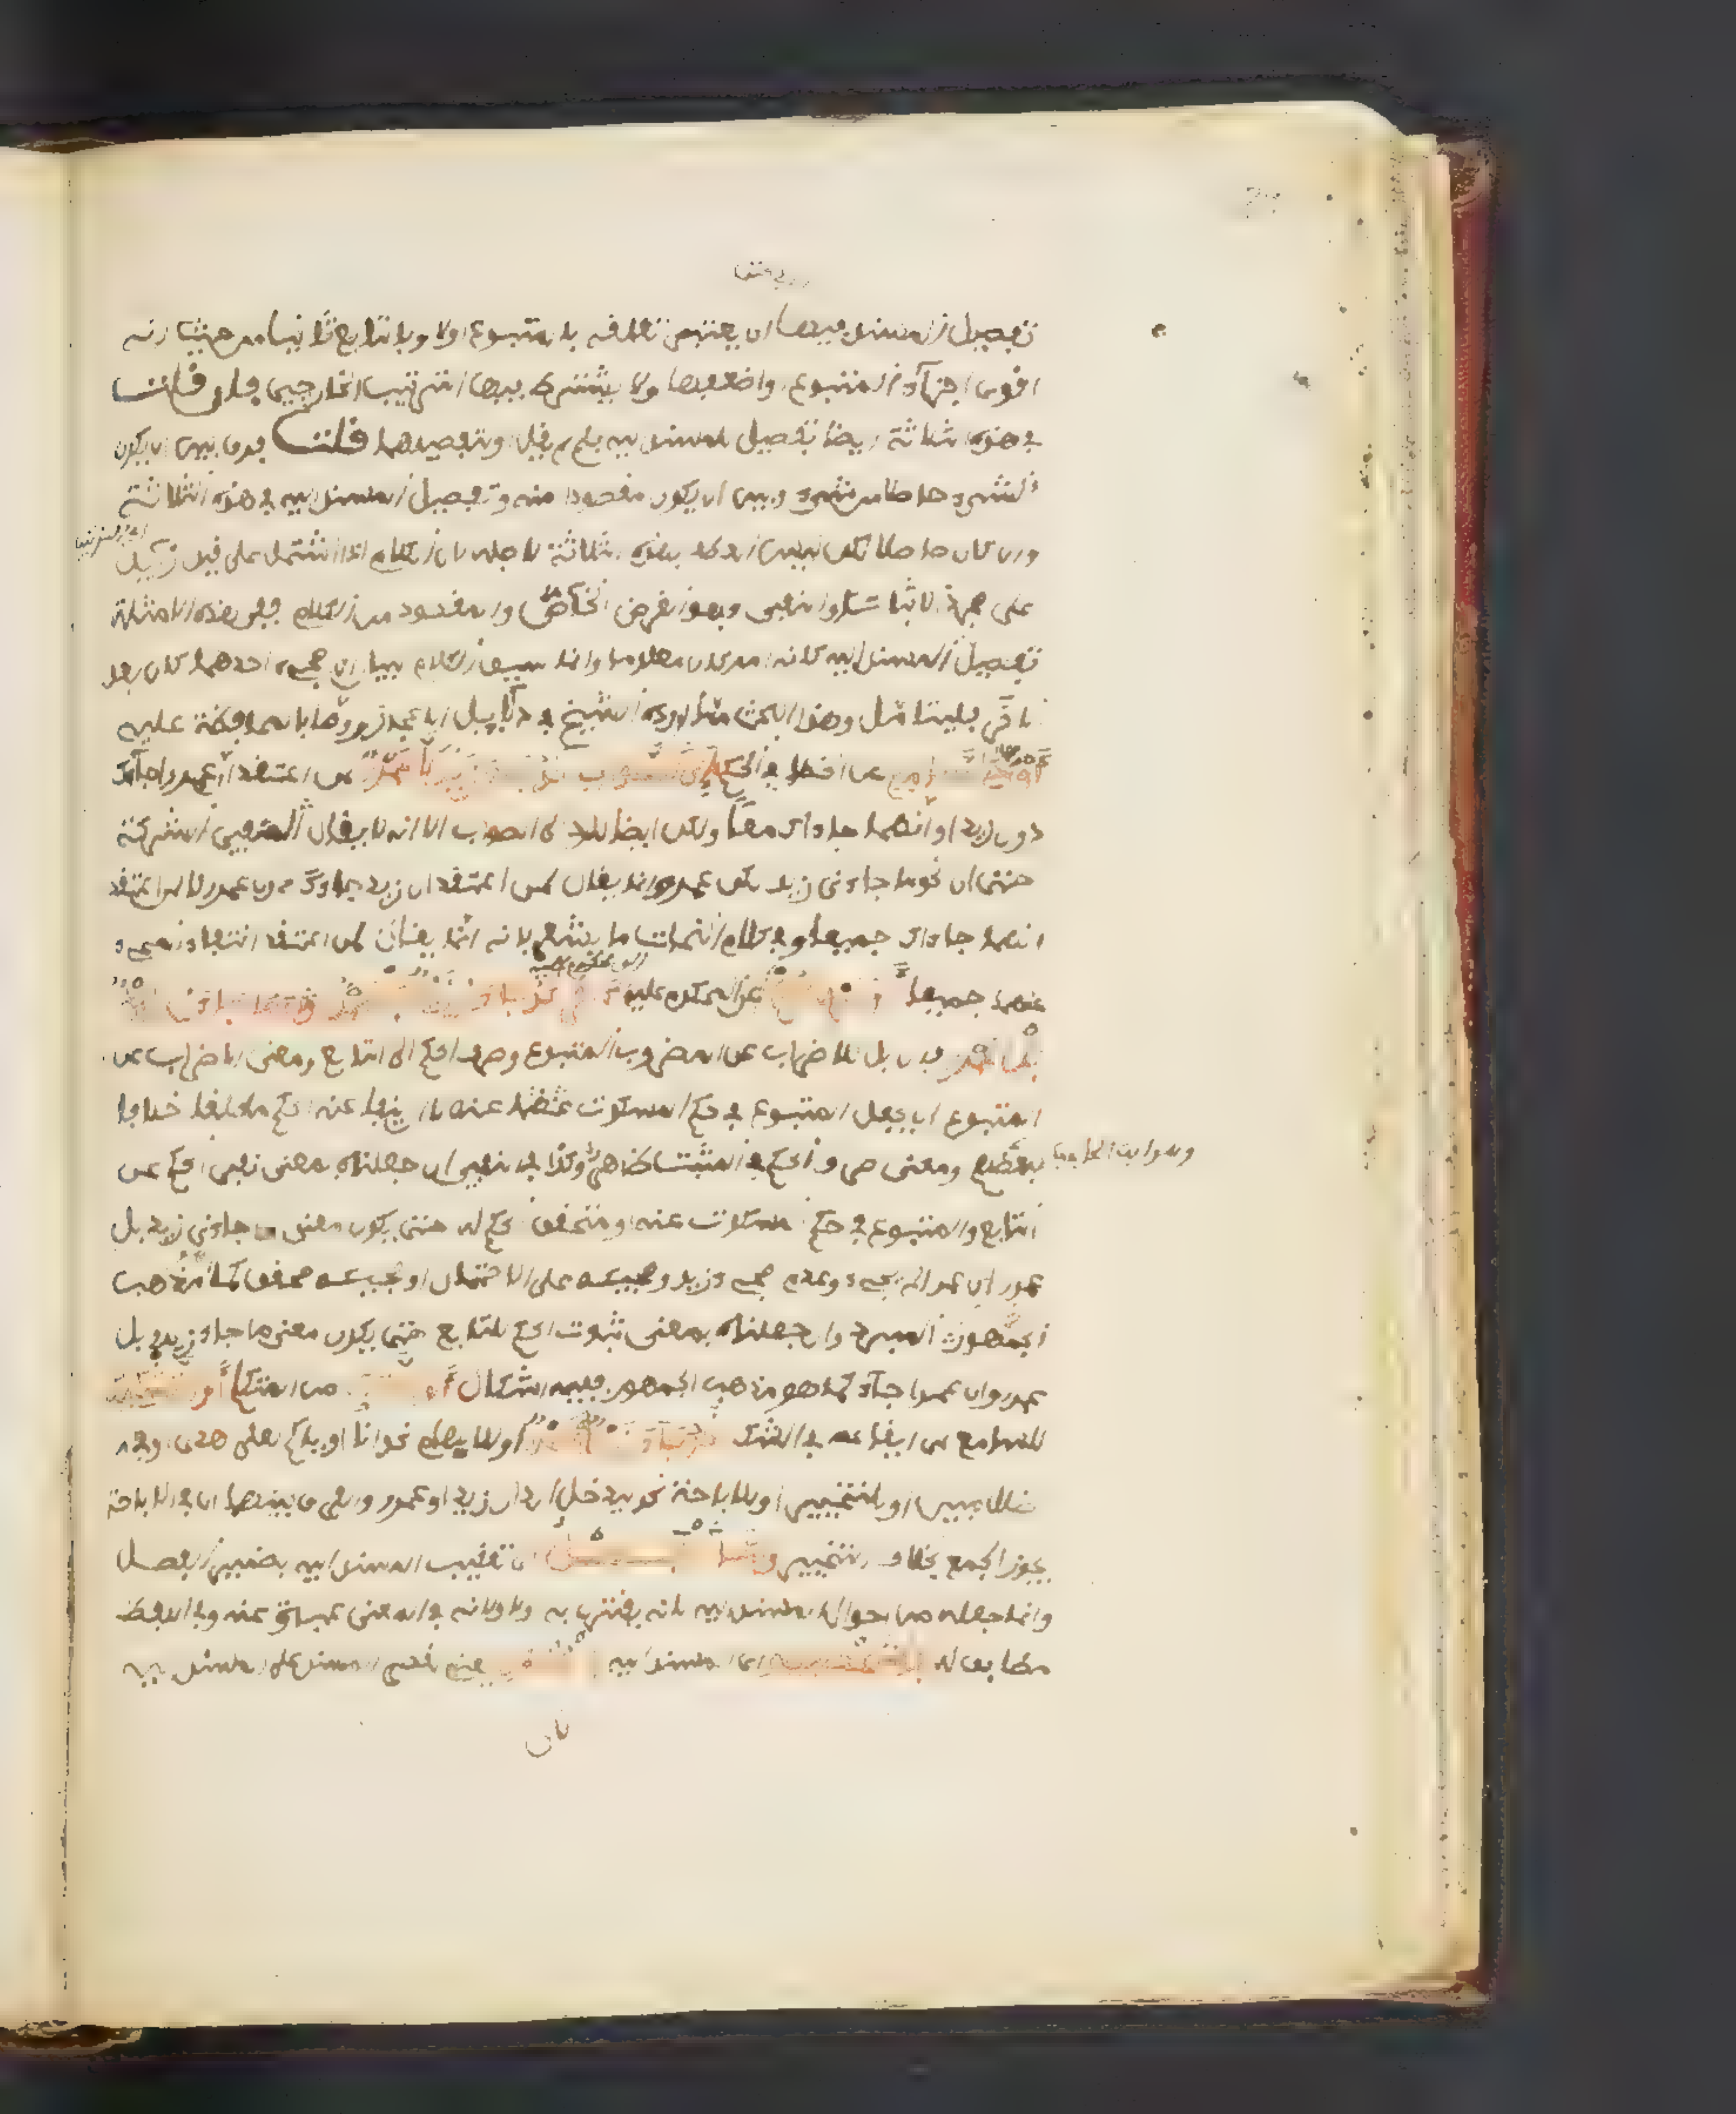 تفصيل المسند فيها ان يعتبر تعلقه بالمتبوع اولا وبالتابع ثانيا من حيث انه
اقوى اجزاء المتبوع واضعفها ولا يشترط فيها الترتيب الخارجي فان قلت
في هذه الثلاثة ايضا تفصيل المسند اليه فلم لم يقل او تفصيلهما قلت فرق بين ان يكون
الشيء حاصلا من شيء وبين ان يكون مقصودا منه وتفصيل المسند اليه في هذه الثلاثة
وان كان حاصلا لكن ليس العطف بهذه الثلاثة لاجله لان الكلام اذا اشتمل على قيد زائد
على مجرد الاثبات او النفي فهو الغرض الخاص والمقصود من الكلام ففي هذه الامثلة
تفصيل المسند اليه كانه امر كان معلوما وانما سيق الكلام لبيان ان مجيء احدهما كان بعد
الاخر فليتامل وهذا البحث مما اورده الشيخ في دلائل الاعجاز ووصى بالمحافظة عليه
عن الخطا في الحكم الى الصواب نحو جاءني زيد لا عمرو لمن اعتقد ان عمرا جاءك
دون زيد او انهما جاءاك معا ولكن ايضا للرد الى الصواب الا انه لا يقال لنفي الشركة
حتى ان نحو ما جاءني زيد لكن عمرو انما يقال لمن اعتقد ان زيدا جاءك دون عمرو لا لمن اعتقد
انهما جاءاك جميعا وفي كلام النحاة ما يشعر بانه انما يقال لمن اعتقد انتفاء المجيء
عنهما جميعا او صرف الحكم عن المحكوم عليه الى اخر نحو جاءني زيد بل عمرو وما جاءني زيد
بل عمرو فان بل للاضراب عن المتبوع وصرف الحكم الى التابع ومعنى الاضراب عن
المتبوع ان يجعل المتبوع في حكم المسكوت عنه لا ان ينفى عنه الحكم قطعا خلافا
لبعضهم ومعنى صرف الحكم في المثبت ظاهر وكذا في المنفي ان جعلناه بمعنى نفي الحكم عن
التابع والمتبوع في حكم المسكوت عنه او متحقق الحكم له حتى يكون معنى ما جاءني زيد بل
عمرو ان عمرا لم يجئ وعدم مجيء زيد ومجيئه على الاحتمال او مجيئه محقق كما هو مذهب
المبرد وان جعلناه بمعنى ثبوت الحكم للتابع حتى يكون معنى ما جاء زيد بل
عمرو ان عمرا جاء كما هو مذهب الجمهور ففيه اشكال او للشك من المتكلم او التشكيك
للسامع اي ايقاعه في الشك نحو جاءني زيد او عمرو او للابهام نحو انا او اياكم لعلى هدى او في
ضلال مبين او للتخيير او للاباحة نحو ليدخل الدار زيد او عمرو والفرق بينهما ان في الاباحة
يجوز الجمع بخلاف التخيير واما الفصل اي تعقيب المسند اليه بضمير الفصل
وانما جعله من احوال المسند اليه لانه يقترن به اولا ولانه في المعنى عبارة عنه وفي اللفظ
مطابق له فلتخصيصه اي المسند اليه بالمسند يعني لقصر المسند على المسند اليه
لان